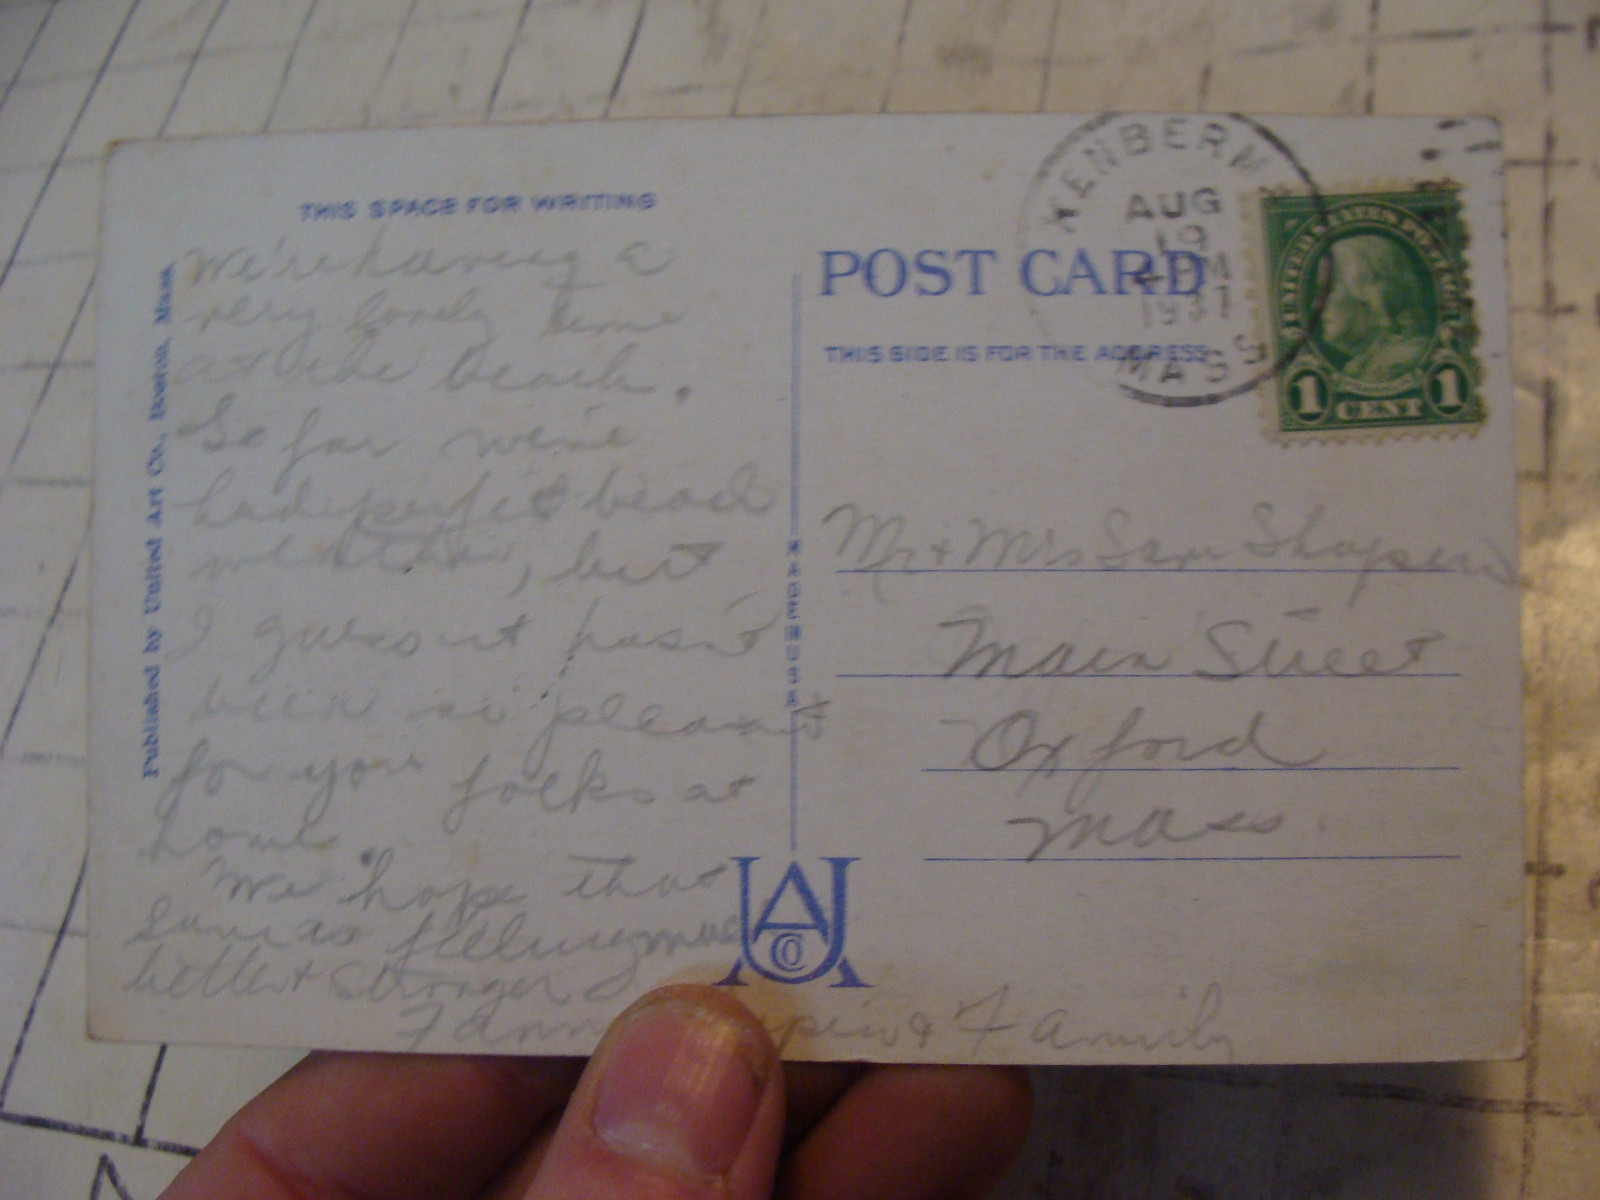 THIS SPACE FOR WRITING
We're having a
very lovely time
at the beach.
So far we've
had perfect beach
weather, but
I guess it hasn't
been so pleasant
for you folks at
home.
We hope that
Sam is feeling much
better & stronger
Published by United Art Co., Boston, Mass.
MADE IN U.S.A.
POST CARD
THIS SIDE IS FOR THE ADDRESS
KENBERMA
AUG
19
PM
1931
MASS
UNITED STATES POSTAGE
1 CENT 1
Mr & Mrs Sam Shapiro
Main Street
Oxford
Mass.
UACO
& Family